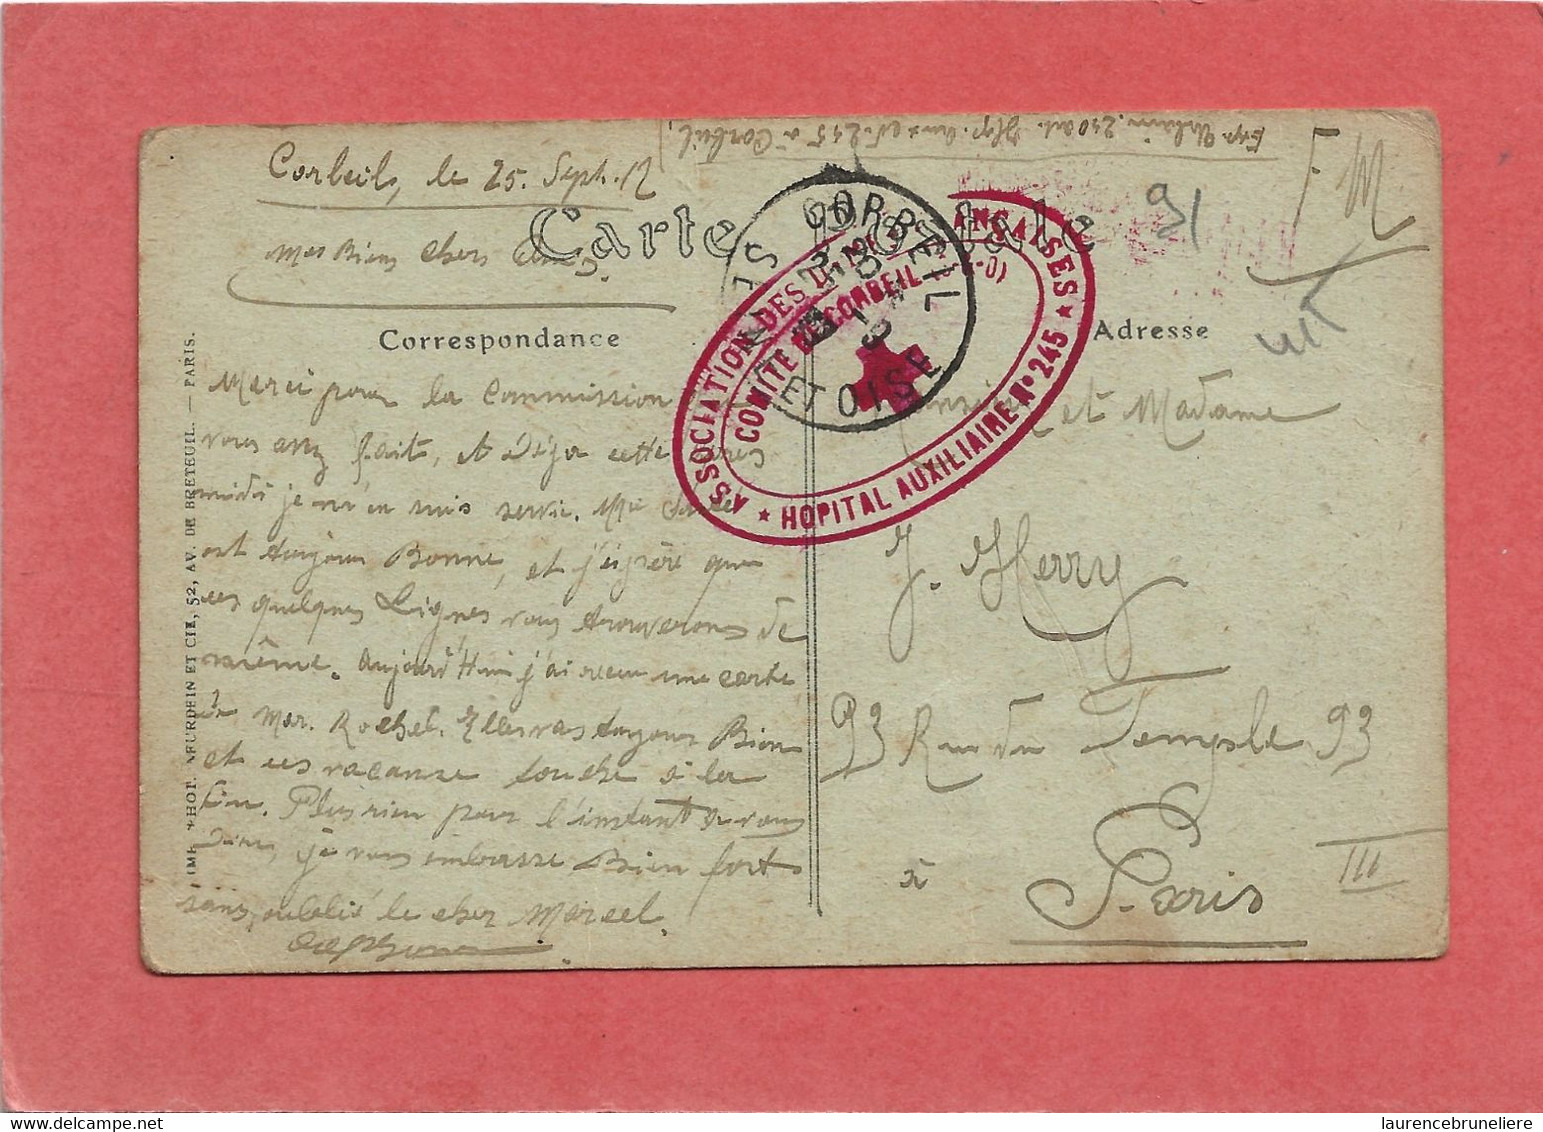 Corbeils, le 25. Sept. 17
Mes Biens chers
Exp. 210 at. 245 à Corbeil,
F M
91
Carte
Correspondance
Adresse
CORBEIL
SEINE
ET OISE
ASSOCIATION DES DAMES FRANÇAISES
COMITÉ DE CORBEIL
(S.-&-O)
★ HOPITAL AUXILIAIRE N° 245 ★
Merci pour la Commission
vous avez fait, et Déja cette après
midi je m'en suis servie. Ma Santé
est toujours Bonne, et j'éspère que
ces quelques Lignes vous trouverons de
même. Aujourd'Hui j'ai recue une carte
de Mar. Rochel. Elles vas toujours Bien
et ces vacanse touche à la
fin. Plus rien pour l'instant à vous
Dire, je vous embrasse Bien fort
sans oublié le cher Marcel.
Monsieur et Madame
J. Herry
93 Rue du Temple 93
à Paris
III
IMP. PHOT. NEURDEIN ET CIE, 52, AV. DE BRETEUIL. — PARIS.
laurencebruneliere